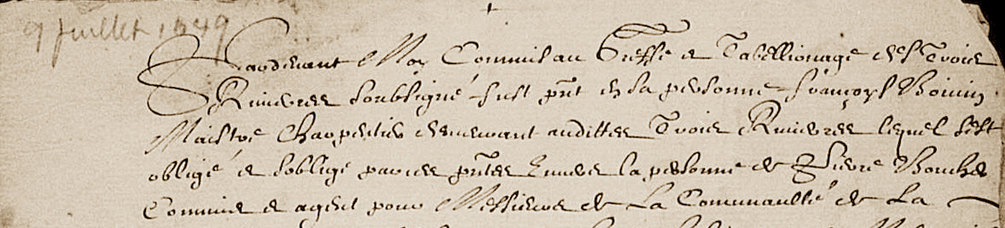 9 Juillet 1649
Pardevant Moy Commis au Greffe et Tabellionage des Trois
Rivieres soubsigné fust pnt en sa personne françoys Boivin
Maistre Charpentier demeurant audittes Trois Rivieres lequel s'est
obligé et soblige par ces pntes Envers la personne de Pierre Boucher
Commis et agent pour Messieurs de La Communaulté de La